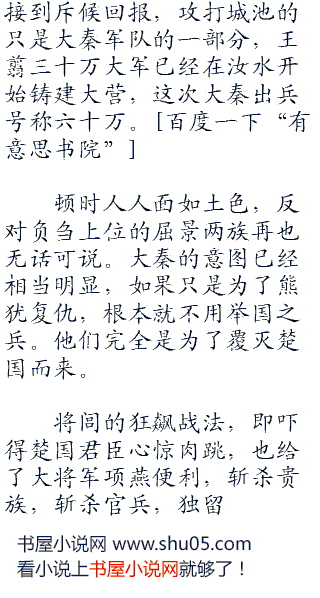 接到斥候回报，攻打城池的
只是大秦军队的一部分，王
翦三十万大军已经在汝水开
始铸建大营，这次大秦出兵
号称六十万。[百度一下“有
意思书院”]
顿时人人面如土色，反
对负刍上位的屈景两族再也
无话可说。大秦的意图已经
相当明显，如果只是为了熊
犹复仇，根本就不用举国之
兵。他们完全是为了覆灭楚
国而来。
将闾的狂飙战法，即吓
得楚国君臣心惊肉跳，也给
了大将军项燕便利，斩杀贵
族，斩杀官兵，独留
书屋小说网 www.shu05.com
看小说上书屋小说网就够了！